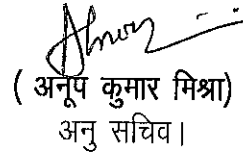 ( अनूप कुमार मिश्रा)
अनु सचिव।